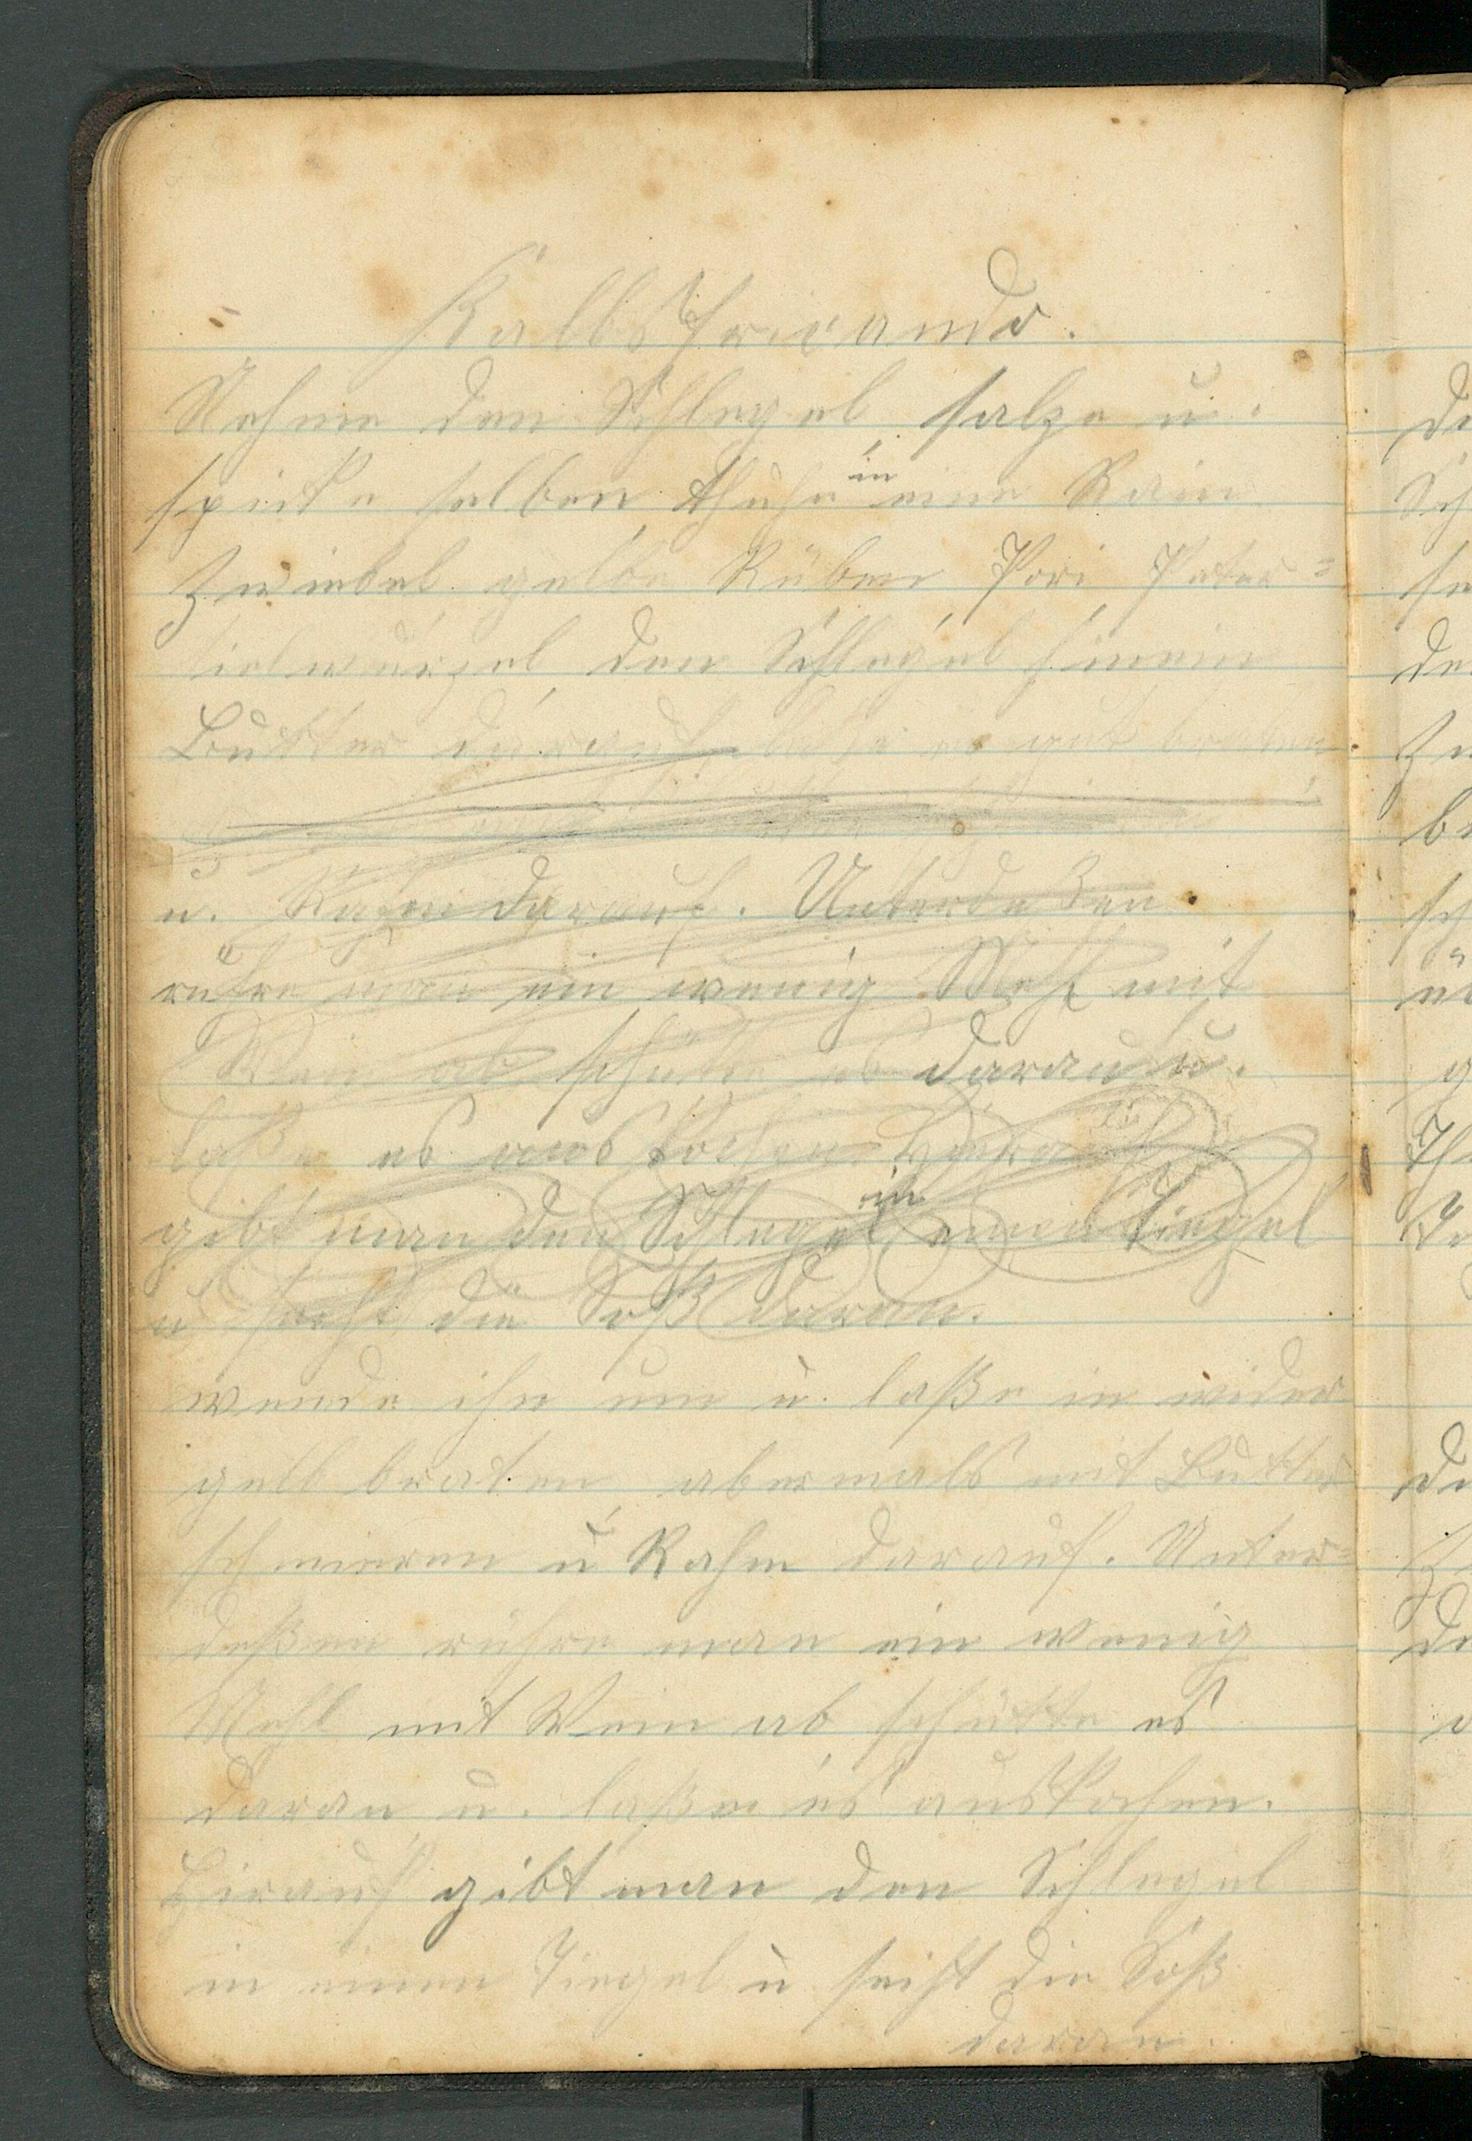 Kalbsfricando.
Nehme den Schlegel, salze u.
spicke selben, thuhe in eine Rain
Zwiebel gelbe Rüben, Pori Peter=
sielwurzel, den Schlegel hinein
Butter darauf, laße es gut braten
u. Rahm darauf. Unterdeßen
rühre man ein wenig Mehl mit
Wein ab schütte es daran u.
laße es auskochen. Hierauf
gibt man den Schlegel in einen Tiegel
u seiht die Soß daran.
wende ihn um u. laße in wider
gelb braten, abermals mit Butter
schmieren u Rahm darauf. Unter=
deßen rühre man ein wenig
Mehl mit Wein ab schütte es
daran u. laße es auskochen.
Hirauf gibt man den Schlegel
in einen Tiegel u seiht die Soß
daran.